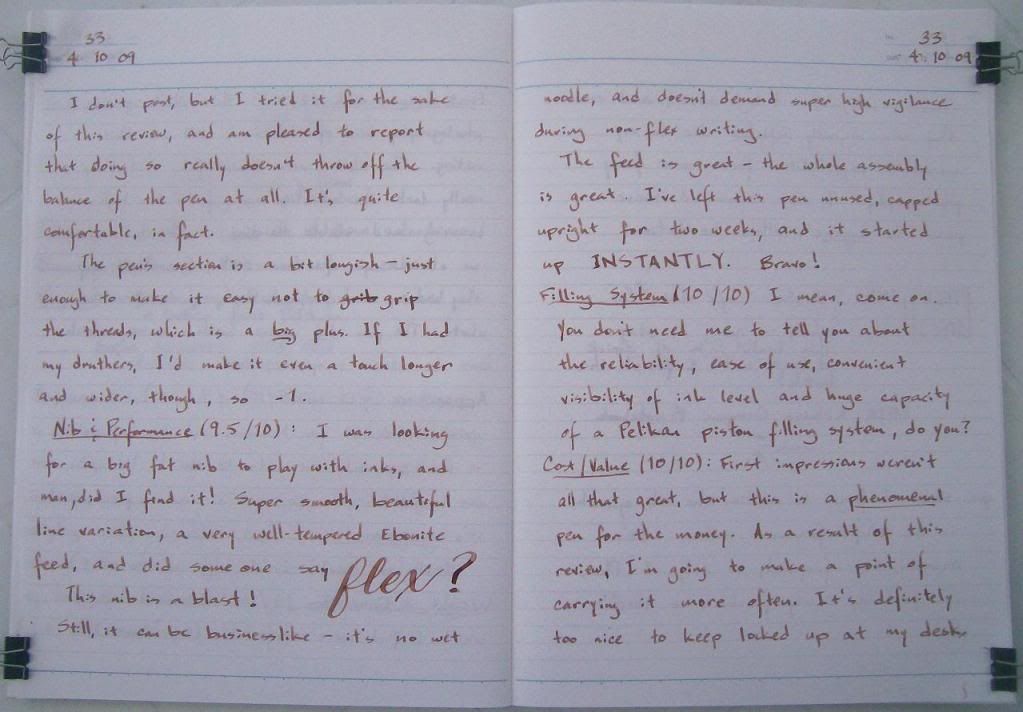 33
4 10 09
I don't post, but I tried it for the sake
of this review, and am pleased to report
that doing so really doesn't throw off the
balance of the pen at all. It's quite
comfortable, in fact.
The pen's section is a bit longish – just
enough to make it easy not to grib grip
the threads, which is a big plus. If I had
my druthers, I'd make it even a touch longer
and wider, though, so -1.
Nib & Performance (9.5/10): I was looking
for a big fat nib to play with inks, and
man, did I find it! Super smooth, beautiful
line variation, a very well-tempered Ebonite
feed, and did someone say flex?
This nib is a blast!
Still, it can be businesslike – it's no wet
33
4 10 09
noodle, and doesn't demand super high vigilance
during non-flex writing.
The feed is great – the whole assembly
is great. I've left this pen unused, capped
upright for two weeks, and it started
up INSTANTLY. Bravo!
Filling System (10/10) I mean, come on.
You don't need me to tell you about
the reliability, ease of use, convenient
visibility of ink level and huge capacity
of a Pelikan piston filling system, do you?
Cost/Value (10/10): First impressions weren't
all that great, but this is a phenomenal
pen for the money. As a result of this
review, I'm going to make a point of
carrying it more often. It's definitely
too nice to keep locked up at my desk.